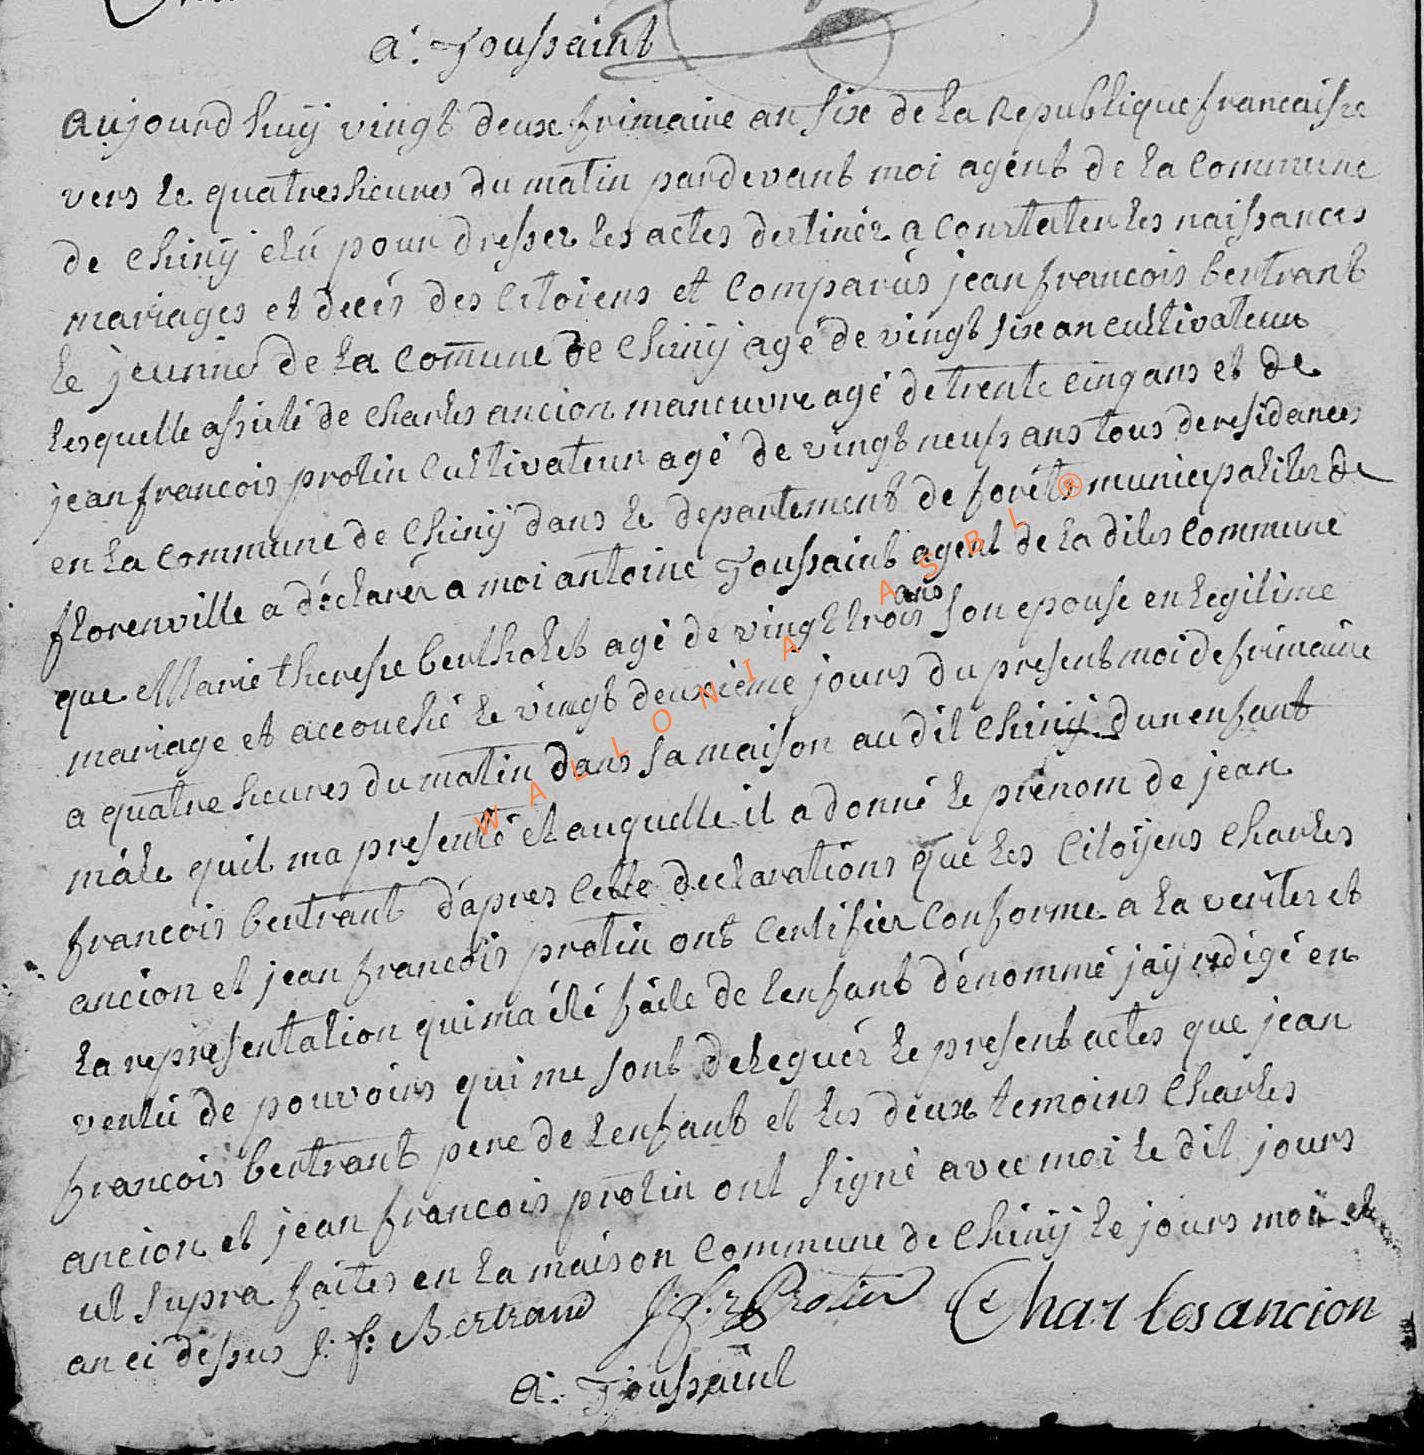 a. Toussaint
aujourd huij vingt deux frimaire an six de la Republique francaisse
vers le quatres heures du matin pardevant moi agent de la commune
de chinij elú pour dresser les actes destinér a constater les naissances
mariages et decés des citoiens et comparús jean francois bertrant
le jeunne de la comune de chinij agé de vingt six an cultivateur
lesquelle assisté de charles ancion maneuvre agé de trente cinq ans et de
jean francois protin cultivateur agé de vingt neufs ans tous de residances
en la commune de chinij dans le departement de foréts municipaliter de
florenville a déclarér a moi antoine Toussaint agent de la dites commune
ans
que Marie theresse bertholet agé de vingt trois son epouse en legitime
mariage et accouché le vingt deuxieme jours du present moi de frimaire
a quatre heures du matin dans sa maison au dit chinij dun enfant
mâle quil ma presenté et auquelle il a donné le prénom de jean
francois bertrant dápres cette declarations que les citoijens charles
ancion et jean francois protin ont certifier conforme a la veriter et
la representation qui ma été faite de lenfant dénommé jaij redigé en
vertú de pouvoirs qui me sont deleguér le present actes que jean
francois bertrant pere de lenfant et les deux temoins charles
ancion et jean francois protin ont signé avec moi le dit jours
ut supra faites en la maison commune de chinij le jours moi et
an ci dessus J: f: Bertrand J: f: Protin Charles ancion
a. Toussaint
WALLONIA ASBL ®